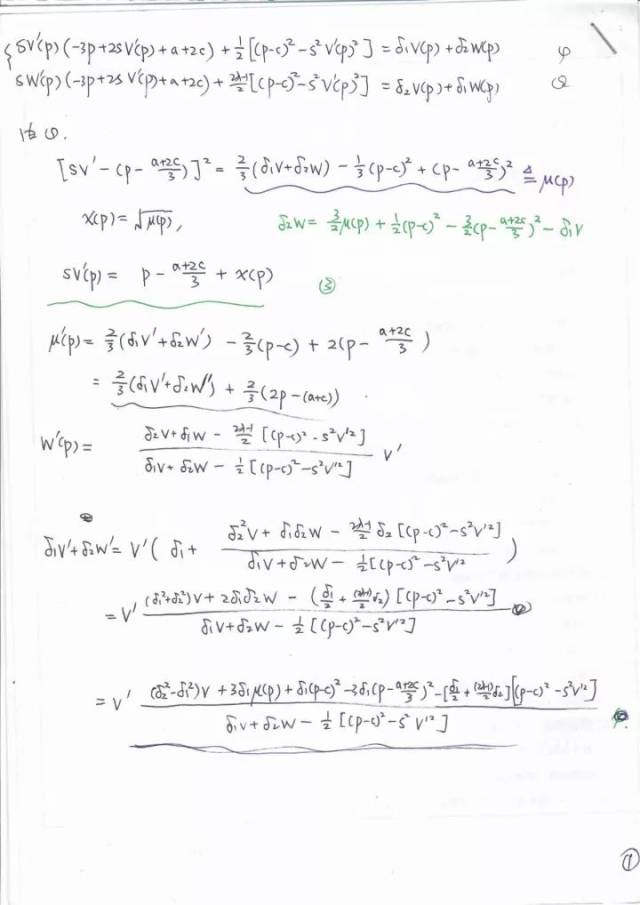 { SV'(p) (-3p+2SV'(p)+a+2c) + 1/2 [(p-c)² - s²V'(p)²] = δ₁V(p)+δ₂W(p) ①
SW'(p) (-3p+2SV'(p)+a+2c) + (2λ-1)/2 [(p-c)² - s²V'(p)²] = δ₂V(p)+δ₁W(p) ②
由①.
[SV' - (p - (a+2c)/3)]² = 2/3 (δ₁V+δ₂W) - 1/3 (p-c)² + (p - (a+2c)/3)² ≜ μ(p)
x(p) = √μ(p), δ₂W = 3/2 μ(p) + 1/2 (p-c)² - 3/2 (p - (a+2c)/3)² - δ₁V
SV'(p) = p - (a+2c)/3 + x(p) ③
μ'(p) = 2/3 (δ₁V'+δ₂W') - 2/3 (p-c) + 2(p - (a+2c)/3)
= 2/3 (δ₁V'+δ₂W') + 2/3 (2p-(a+c))
W'(p) = (δ₂V+δ₁W - (2λ-1)/2 [(p-c)² - s²V'²]) / (δ₁V+δ₂W - 1/2 [(p-c)² - s²V'²]) V'
δ₁V'+δ₂W' = V' ( δ₁ + (δ₂²V + δ₁δ₂W - (2λ-1)/2 δ₂ [(p-c)² - s²V'²]) / (δ₁V+δ₂W - 1/2 [(p-c)² - s²V'²]) )
= V' ((δ₁²+δ₂²)V + 2δ₁δ₂W - (δ₁/2 + (2λ-1)/2 δ₂) [(p-c)² - s²V'²]) / (δ₁V+δ₂W - 1/2 [(p-c)² - s²V'²])
= V' ((δ₂²-δ₁²)V + 3δ₁μ(p) + δ₁(p-c)² - 3δ₁(p - (a+2c)/3)² - [δ₁/2 + (2λ-1)/2 δ₂] [(p-c)² - s²V'²]) / (δ₁V+δ₂W - 1/2 [(p-c)² - s²V'²])
①